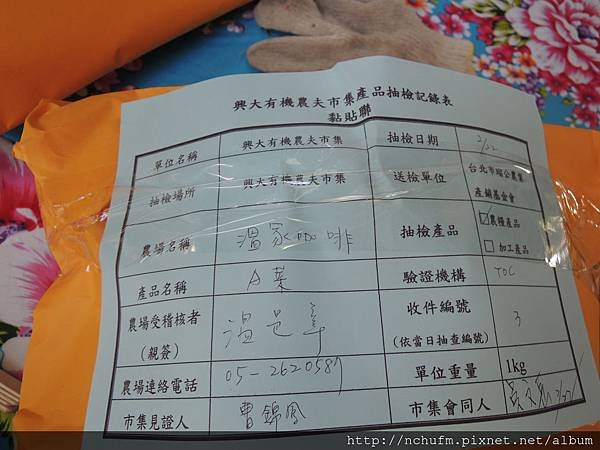 興大有機農夫市集產品抽檢記錄表
黏貼聯
單位名稱 興大有機農夫市集 抽檢日期 2/22
抽檢場所 興大有機農夫市集 送檢單位 台北市瑠公農業
產銷基金會
農場名稱 溫家咖啡 抽檢產品 ☑農糧產品
□ 加工產品
產品名稱 A菜 驗證機構 TOC
農場受稽核者 溫 收件編號 3
(親簽) (依當日抽查編號)
農場連絡電話 05-2620587 單位重量 1kg
市集見證人 曹錦鳳 市集會同人
http://nchufm.pixnet.net/album